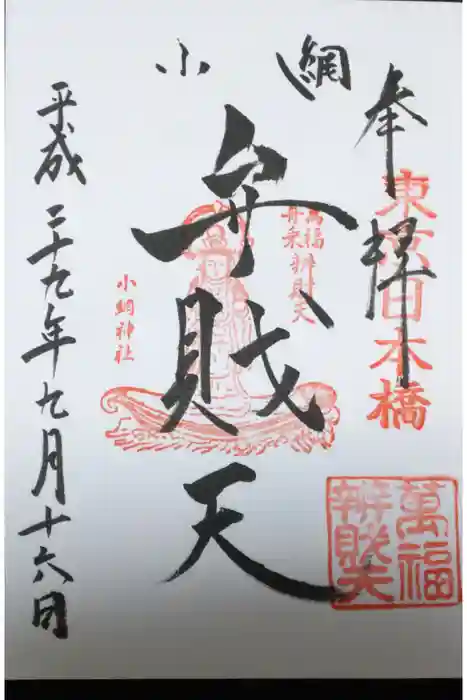 奉拝
東京日本橋
小網
弁財天
萬福
舟乗辨財天
小網神社
萬福
辨財天
平成二十九年九月十六日